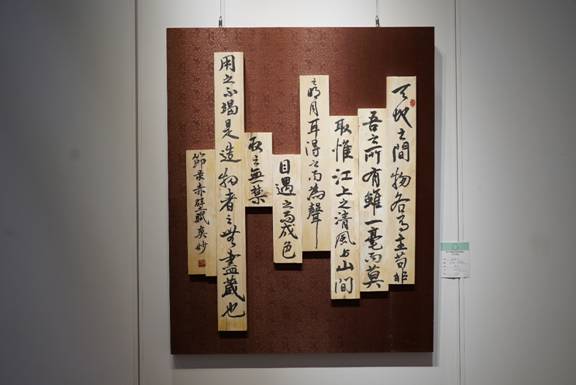 天地之間物各有主苟非
吾之所有雖一毫而莫
取惟江上之清風与山間
之明月耳得之而為聲
目遇之而成色
取之無禁
用之不竭是造物者之無盡藏也
節录赤壁賦